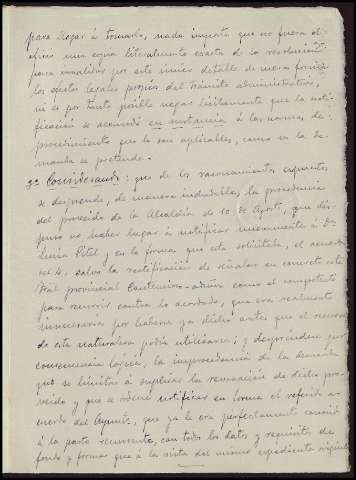 para llegar á tomarlo, nada importa que no fuera el
oficio una copia literalmente exacta de la resolución
para invalidar por este único detalle de mera forma
los efectos legales propios del trámite administrativo,
ni es por tanto posible negar lícitamente que la noti-
ficación se acomodó en sustancia á las normas de
procedimiento que le son aplicables, como en la de-
manda se pretende.
3º Considerando: que de los razonamientos expuestos
se desprende, de manera indudable, la procedencia
del proveido de la Alcaldía de 10 de Agosto, que dis-
puso no haber lugar á notificar nuevamente á Dn
Luisa Pitel y en la forma que esta solicitaba, el acuerdo
del 4, salvo la rectificación de señalar en concreto este
Tral provincial Contencioso-admvo como el competente
para recurrir contra lo acordado, que era realmente
innecesaria por haberse ya dicho antes que el recurso
de esta naturaleza podía utilizarse; y desprenderse por
consecuencia lógica, la improcedencia de la demanda
que se limita á suplicar la revocación de dicho pro-
veido y que se ordene notificar en forma el referido a-
cuerdo del Ayunto, que ya le era perfectamente conocido
á la parte recurrente, con todos los datos y requisitos de
fondo y forma que á la vista del mismo expediente original